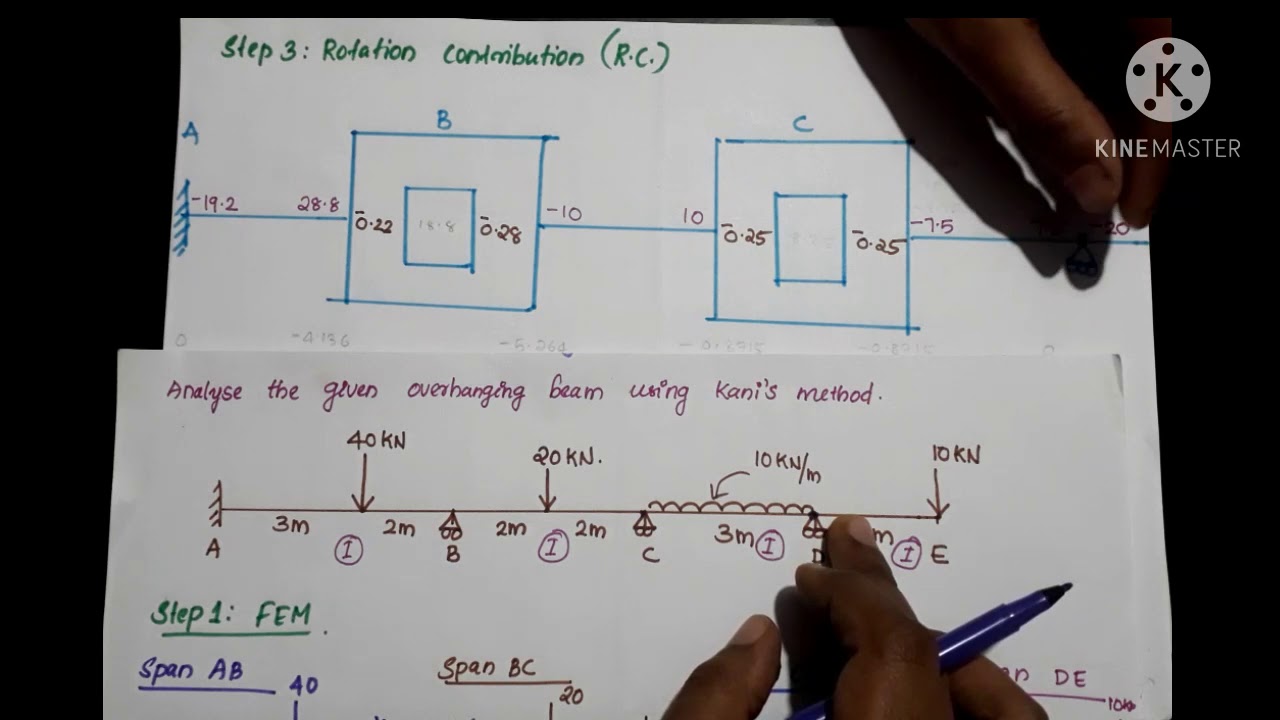 Step 3: Rotation contribution (R.C.)
K
KINEMASTER
A
B
C
-19.2 28.8 -0.22 18.8 -0.28 -10 10 -0.25 -0.25 -7.5 -20
0 -4.136 -5.264 -0.8715 -0.8715 0
Analyse the given overhanging beam using Kani's method.
40KN
20KN.
10KN/m
10KN
3m 2m 2m 2m 3m m
A I B I C I D I E
Step 1: FEM.
Span AB 40
Span BC 20
DE